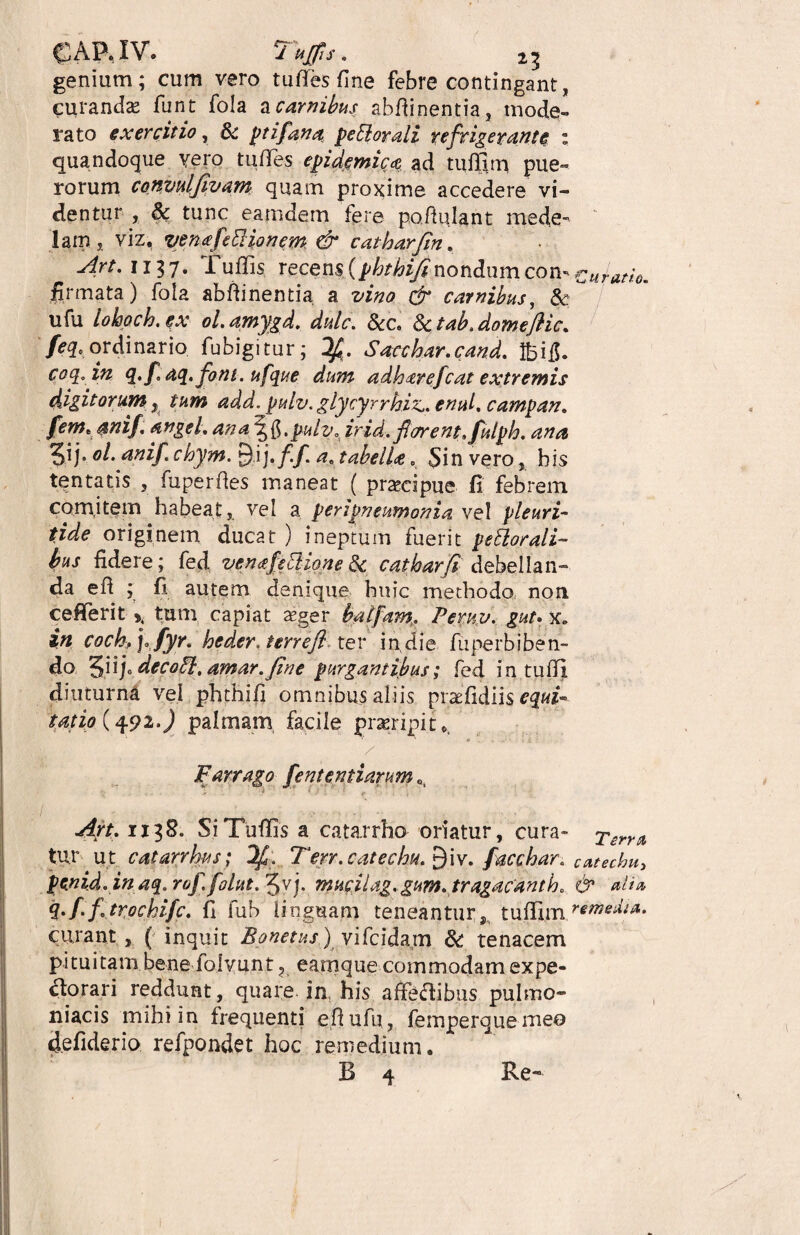 CAP. IV. Tuſſis. 23
genium; cum vero tuſſes ſine febre contingant,
curandæ ſunt ſola a carnibus abſtinentia, mode-
rato exercitio, & ptiſana pectorali refrigerante :
quandoque vero tuſſes epidemicæ ad tuſſim pue-
rorum convulſivam quam proxime accedere vi-
dentur, & tunc eamdem fere poſtulant mede-
lam, viz. venæſectionem & catharſin.
Art. 1137. Tuſſis recens (phthiſi nondum con- Curatio.
firmata) ſola abſtinentia a vino & carnibus, &
uſu lohoch. ex ol. amygd. dulc. &c. & tab. domeſtic.
ſeq. ordinario ſubigitur; ℞. Sacchar. cand. ℔iß.
coq. in q. ſ. aq. font. uſque dum adhæreſcat extremis
digitorum, tum add. pulv. glycyrrhiz. enul. campan.
ſem. aniſ. angel. ana ℥ß. pulv. irid. florent. ſulph. ana
ʒij. ol. aniſ. chym. ℈ij. f. ſ. a. tabellæ. Sin vero, his
tentatis, ſuperſtes maneat ( præcipue ſi febrem
comitem habeat, vel a peripneumonia vel pleuri-
tide originem ducat ) ineptum fuerit pectorali-
bus fidere; ſed venæſectione & catharſi debellan-
da eſt ; ſi autem denique huic methodo non
ceſſerit, tum capiat æger balſam. Peruv. gut. x.
in coch. j. ſyr. heder. terreſt. ter in die ſuperbiben-
do ℥iij. decoct. amar. ſine purgantibus; ſed in tuſſi
diuturnâ vel phthiſi omnibus aliis præſidiis equi-
tatio (492.) palmam facile præripit.
Farrago ſententiarum.
Art. 1138. Si Tuſſis a catarrho oriatur, cura- Terra
tur ut catarrhus; ℞. Terr. catechu. ℈iv. ſacchar. catechu,
penid. in aq. roſ. ſolut. ℥vj. mucilag. gum. tragacanth. & alia
q. ſ. f. trochiſc. ſi ſub linguam teneantur, tuſſim remedia.
curant, ( inquit Bonetus) viſcidam & tenacem
pituitam bene ſolvunt, eamque commodam expe-
ctorari reddunt, quare in his affectibus pulmo-
niacis mihi in frequenti eſt uſu, ſemperque meo
deſiderio reſpondet hoc remedium.
B 4 Re-